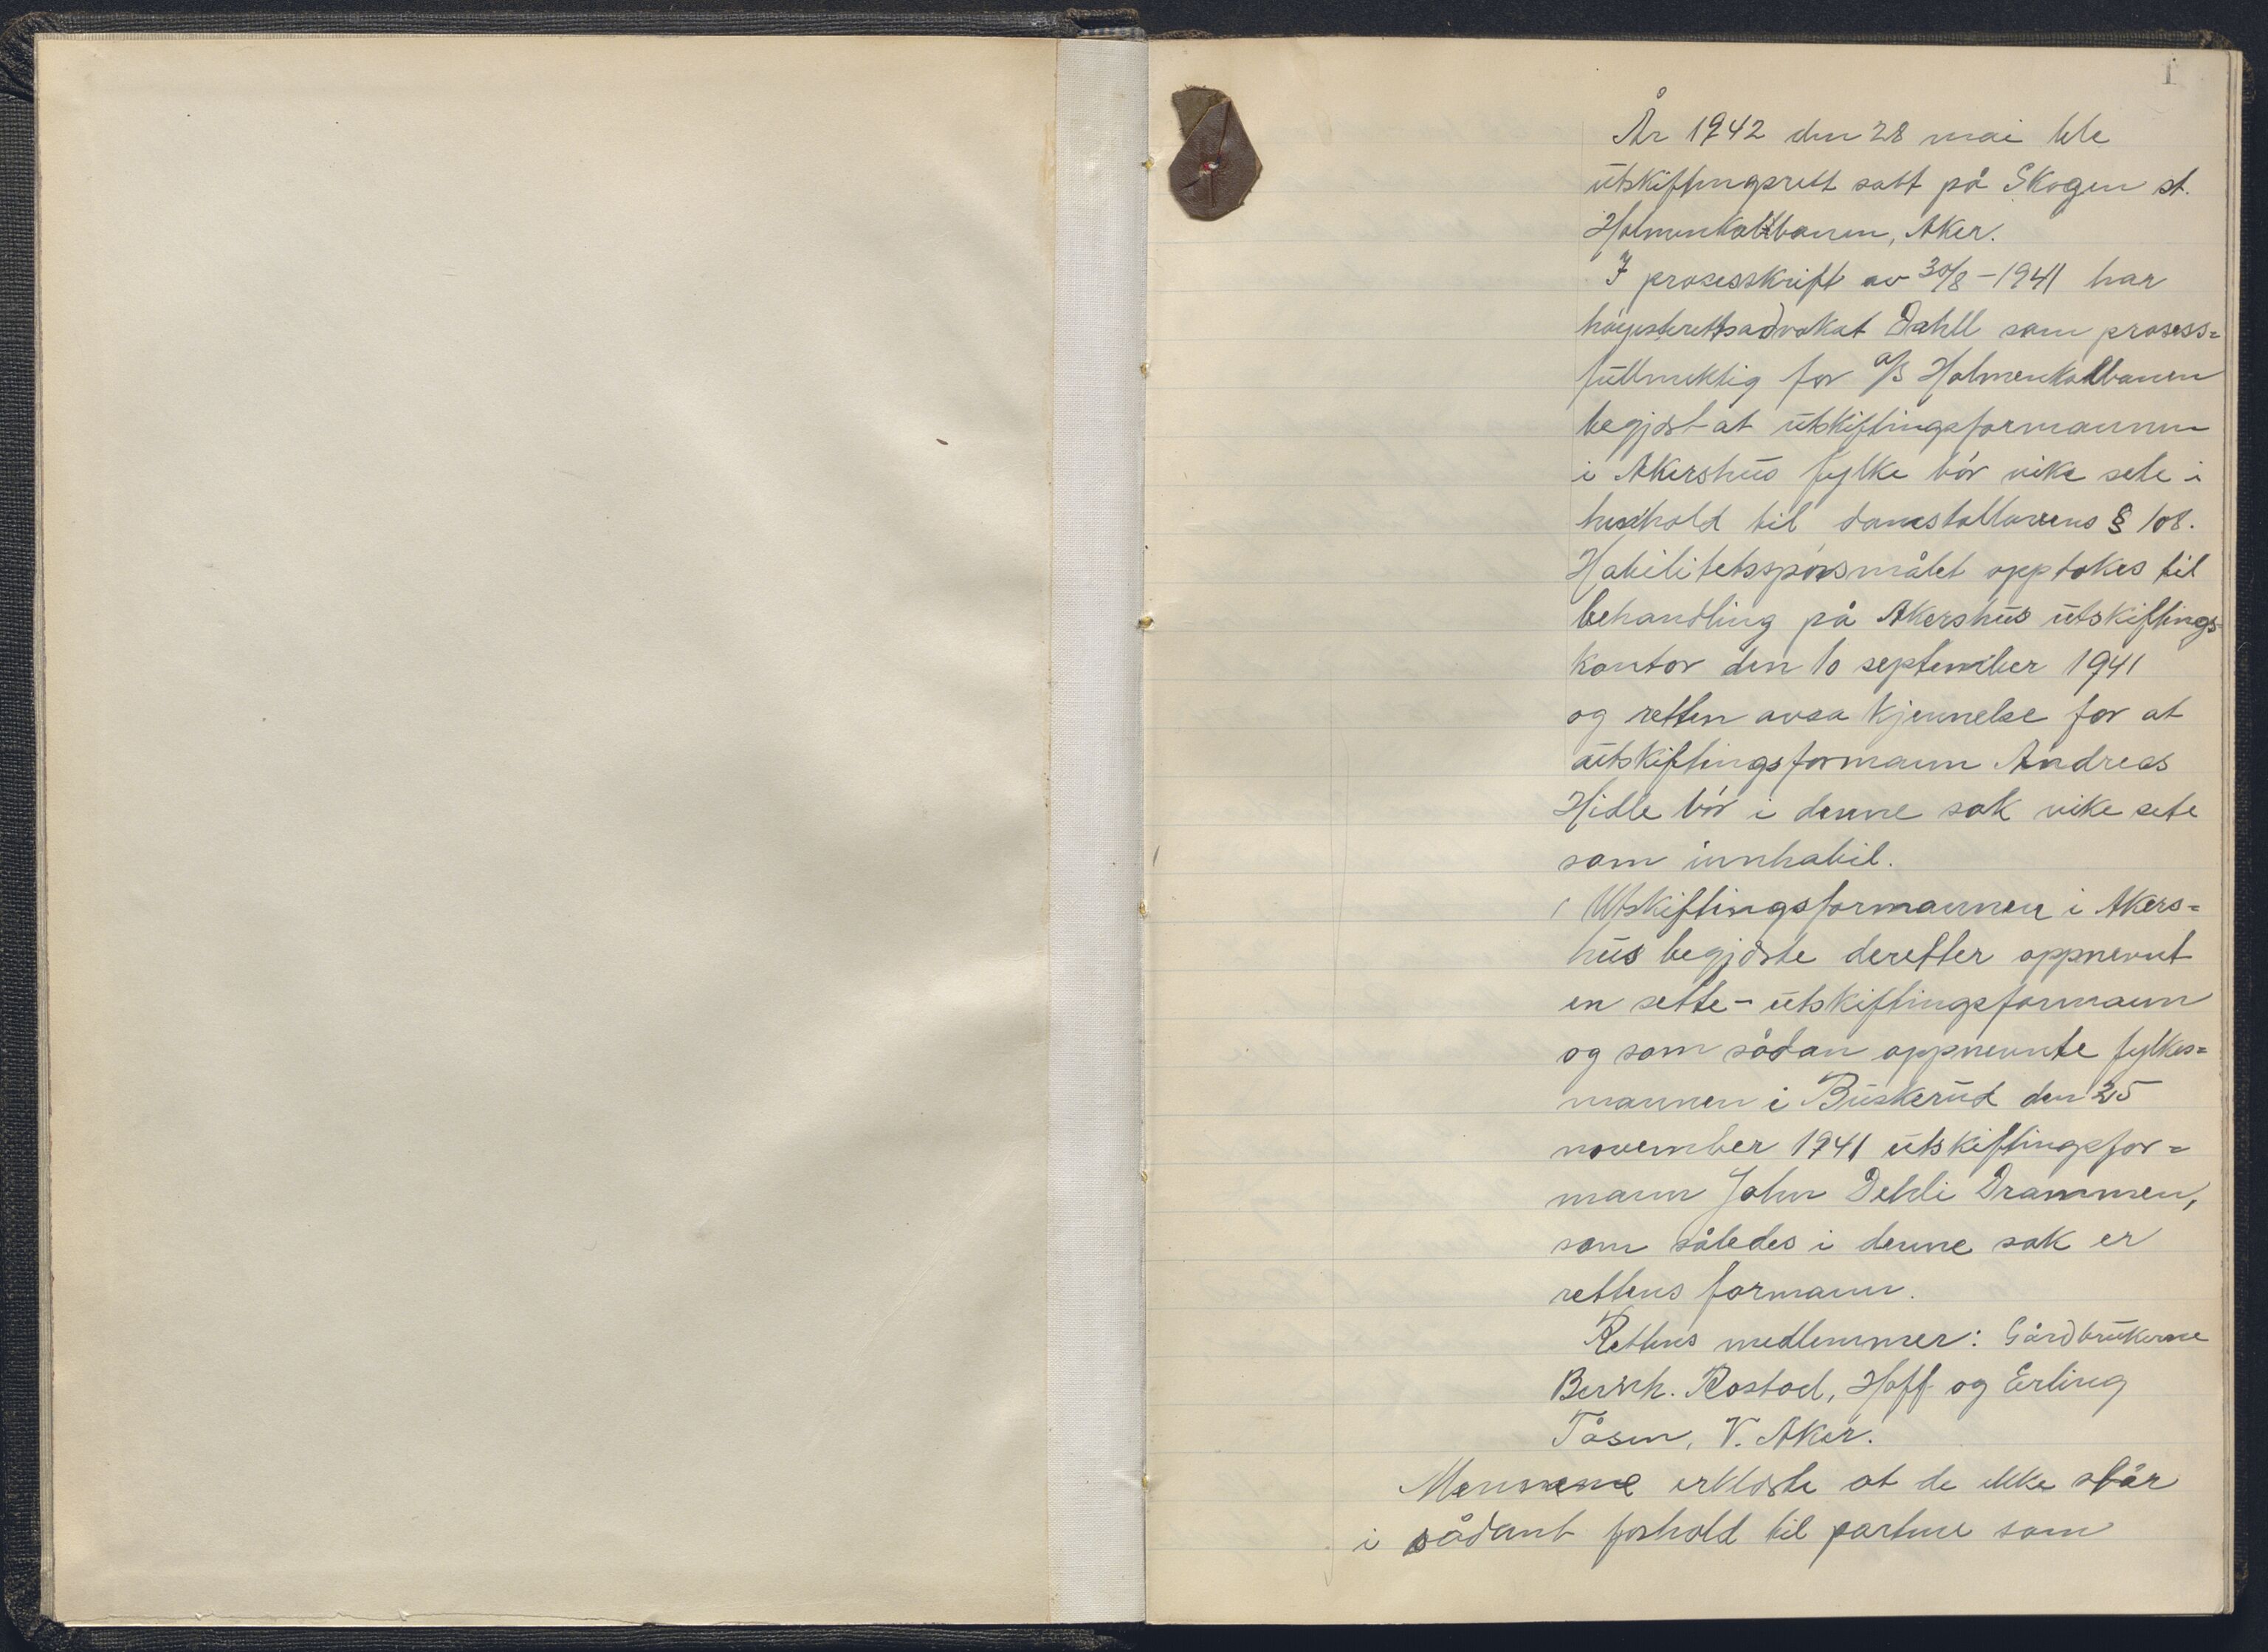 1
År 1942 den 28 mai ble
utskiftingsrett satt på Skogen st.
Holmenkollbanen, Aker.
I prosesskrift av 30/8-1941 har
høyesterettsadvokat Dahll som prosess=
fullmektig for A/S Holmenkollbanen
begjært at utskiftingsformannen
i Akershus fylke bør vike sete i
henhold til domstollovens § 108.
Habilitetsspørsmålet opptokes til
behandling på Akershus utskiftings=
kontor den 10 september 1941
og retten avsa kjennelse for at
utskiftingsformann Andreas
Hidle bør i denne sak vike sete
som innhabil.
Utskiftingsformannen i Akers=
hus begjærte deretter oppnevnt
en sette-utskiftingsformann
og som sådan oppnevnte fylkes=
mannen i Buskerud den 25
november 1941 utskiftingsfor=
mann John Dehli Drammen,
som således i denne sak er
rettens formann.
Rettens medlemmer: Gårdbrukerne
Bernh. Rostad, Hoff og Erling
Tåsen, V. Aker.
Mennene erklærte at de ikke står
i sådant forhold til partene som